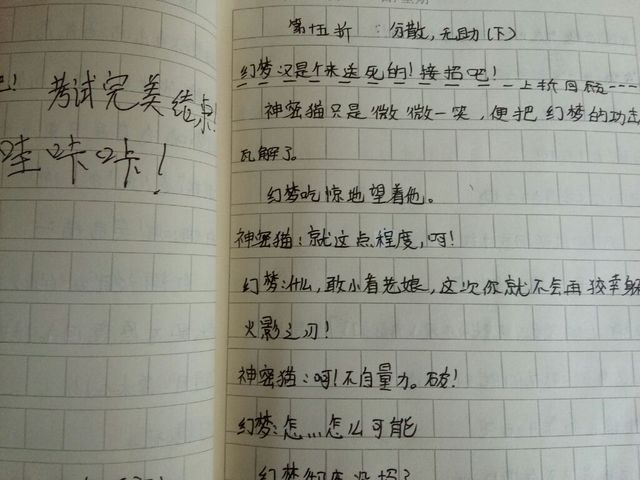 考试完美结束!
哇咔咔!
第十五折:分散,无助(下)
幻梦又是个来送死的!接招吧!
上折回顾
神密猫只是微微一笑,便把幻梦的功击
瓦解了。
幻梦吃惊地望着他。
神密猫:就这点程度,呵!
幻梦:什么,敢小看老娘,这次你就不会再狡幸躲
火影之刃!
神密猫:呵!不自量力。破!
幻梦:怎...怎么可能
幻梦彻底没招?